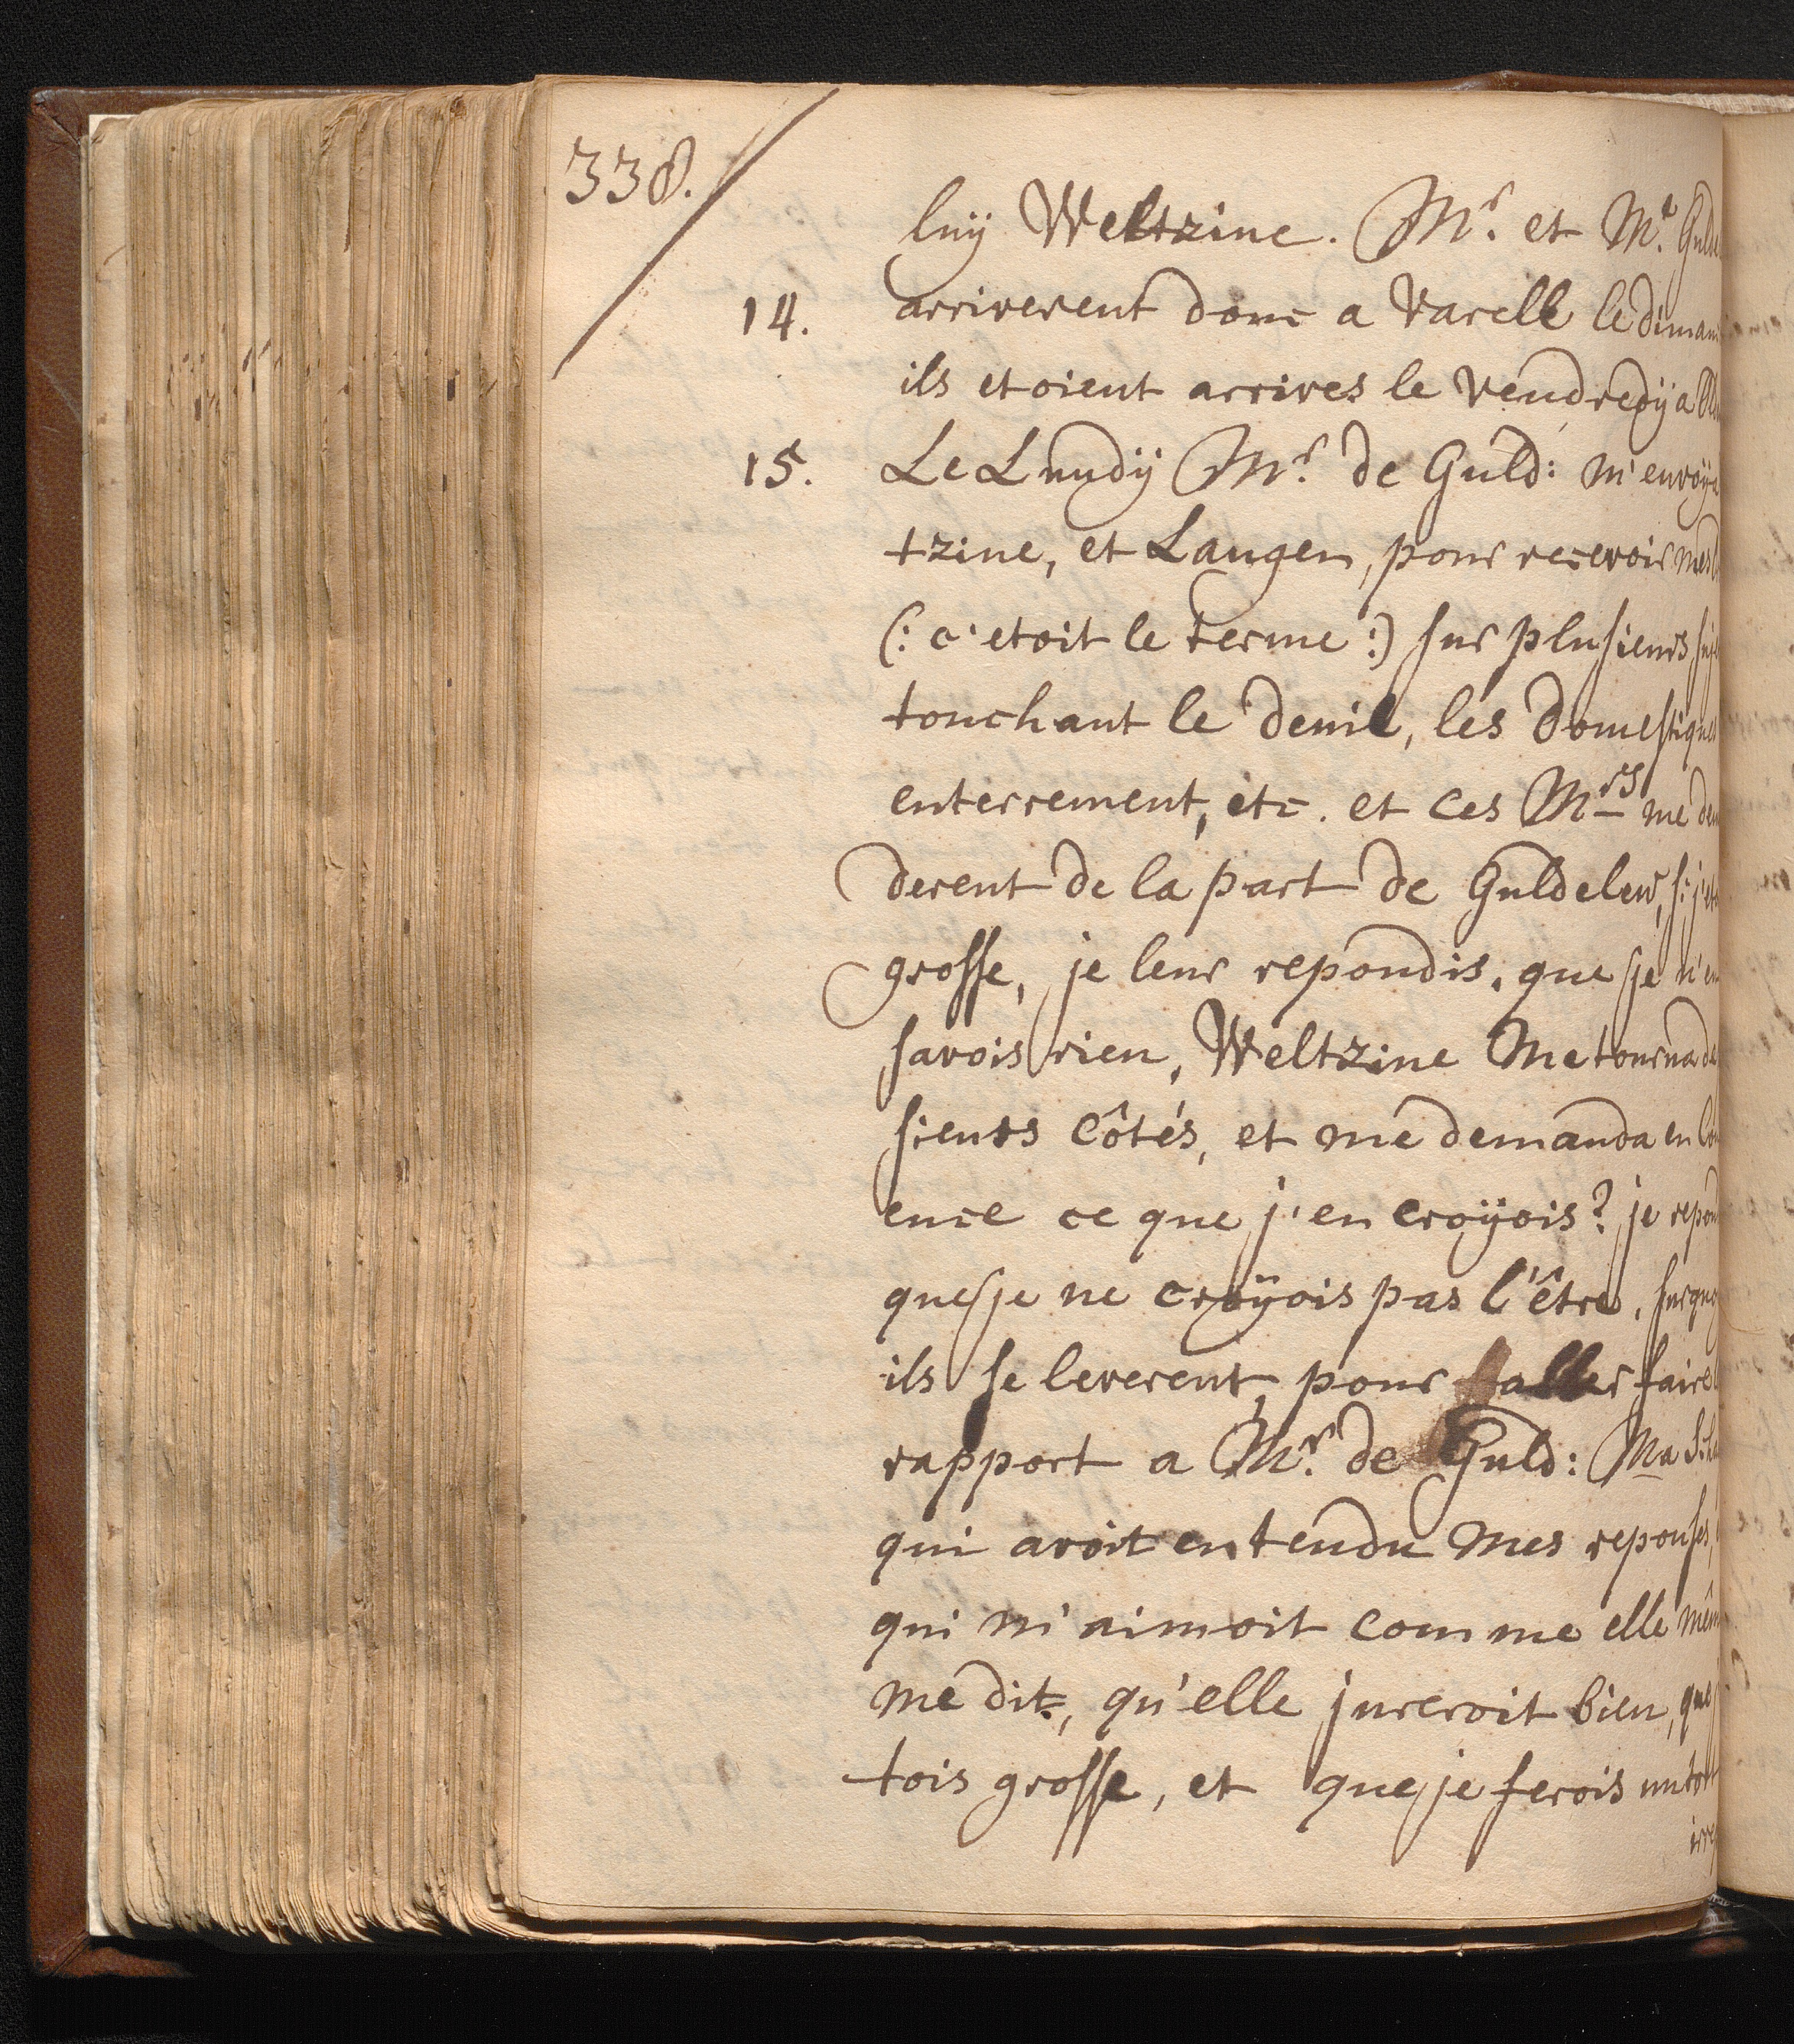 338.
luÿ Weltzine. Mr. et Me. Gulde
14. arriverent donc a Varelle le diman
ils etoient arrives le Vendredÿ a Old
15. Le Lundÿ Mr. de Guld: m'envoÿa
tzine, et Langen, pour recevoir mes
(: c'etoit le terme :) sur plusieurs suje
touchant le deuil, les domestiques
enterrement, etc. et ces Mrs me den
derent de la part de Guldelew, si j'eto
grosse, je leur repondis, que je n'en
savois rien, Weltzine me tourna de
sieurs côtés, et me demanda en Con
ence ce que j'en croÿois? je repond
que je ne croÿois pas l'être, surquoy
ils se leverent, pour aller faire
rapport a Mr. de Guld: Ma
qui avoit entendu mes reponses,
qui m'aimoit comme elle mêm
me dit, qu'elle jureroit bien, que
tois grosse, et que je ferois un tort
irre